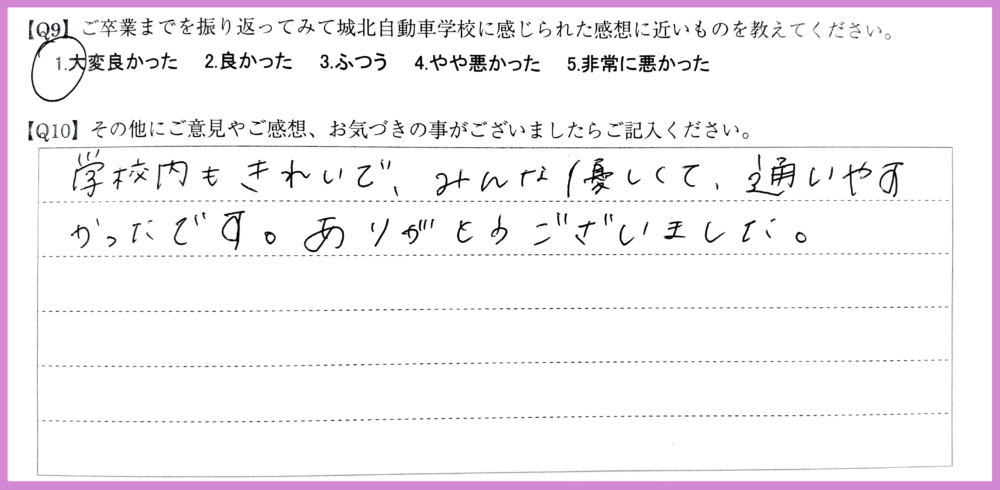 【Q9】ご卒業までを振り返ってみて城北自動車学校に感じられた感想に近いものを教えてください。
1.大変良かった 2.良かった 3.ふつう 4.やや悪かった 5.非常に悪かった
【Q10】その他にご意見やご感想、お気づきの事がございましたらご記入ください。
学校内もきれいで、みんな優しくて、通いやす
かったです。ありがとうございました。